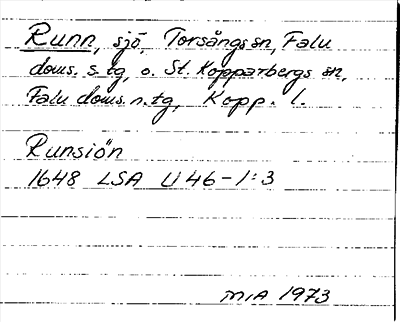 Runn, sjö, Torsångs sn, Falu
doms. s. tg, o. St. Kopparbergs sn,
Falu doms. n. tg, Kopp. l.
Runsiön
1648 LSA U46-1:3
MIA 1973